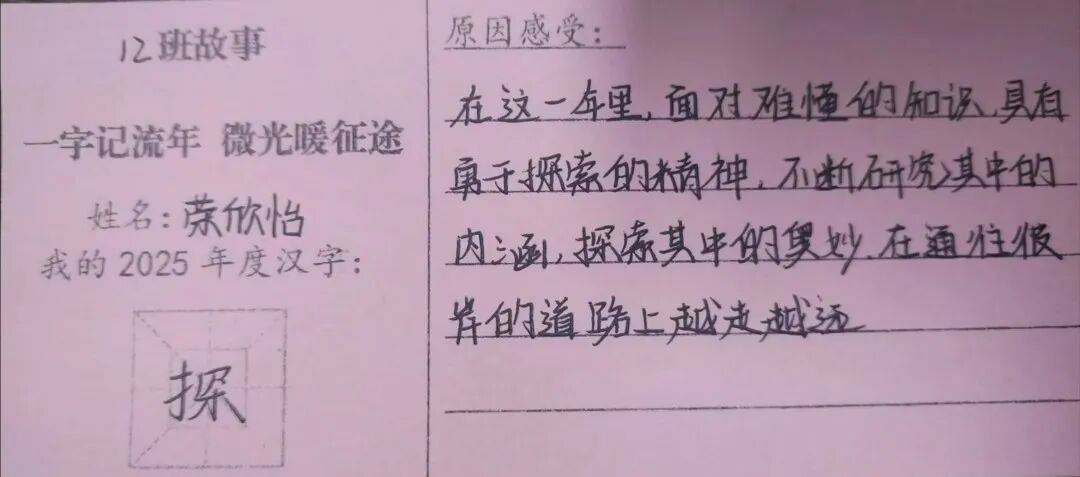 12班故事
一字记流年 微光暖征途
姓名:荣欣怡
我的2025年度汉字:
探
原因感受:
在这一年里,面对难懂的知识,具有
勇于探索的精神,不断研究其中的
内涵,探索其中的奥妙.在通往彼
岸的道路上越走越远